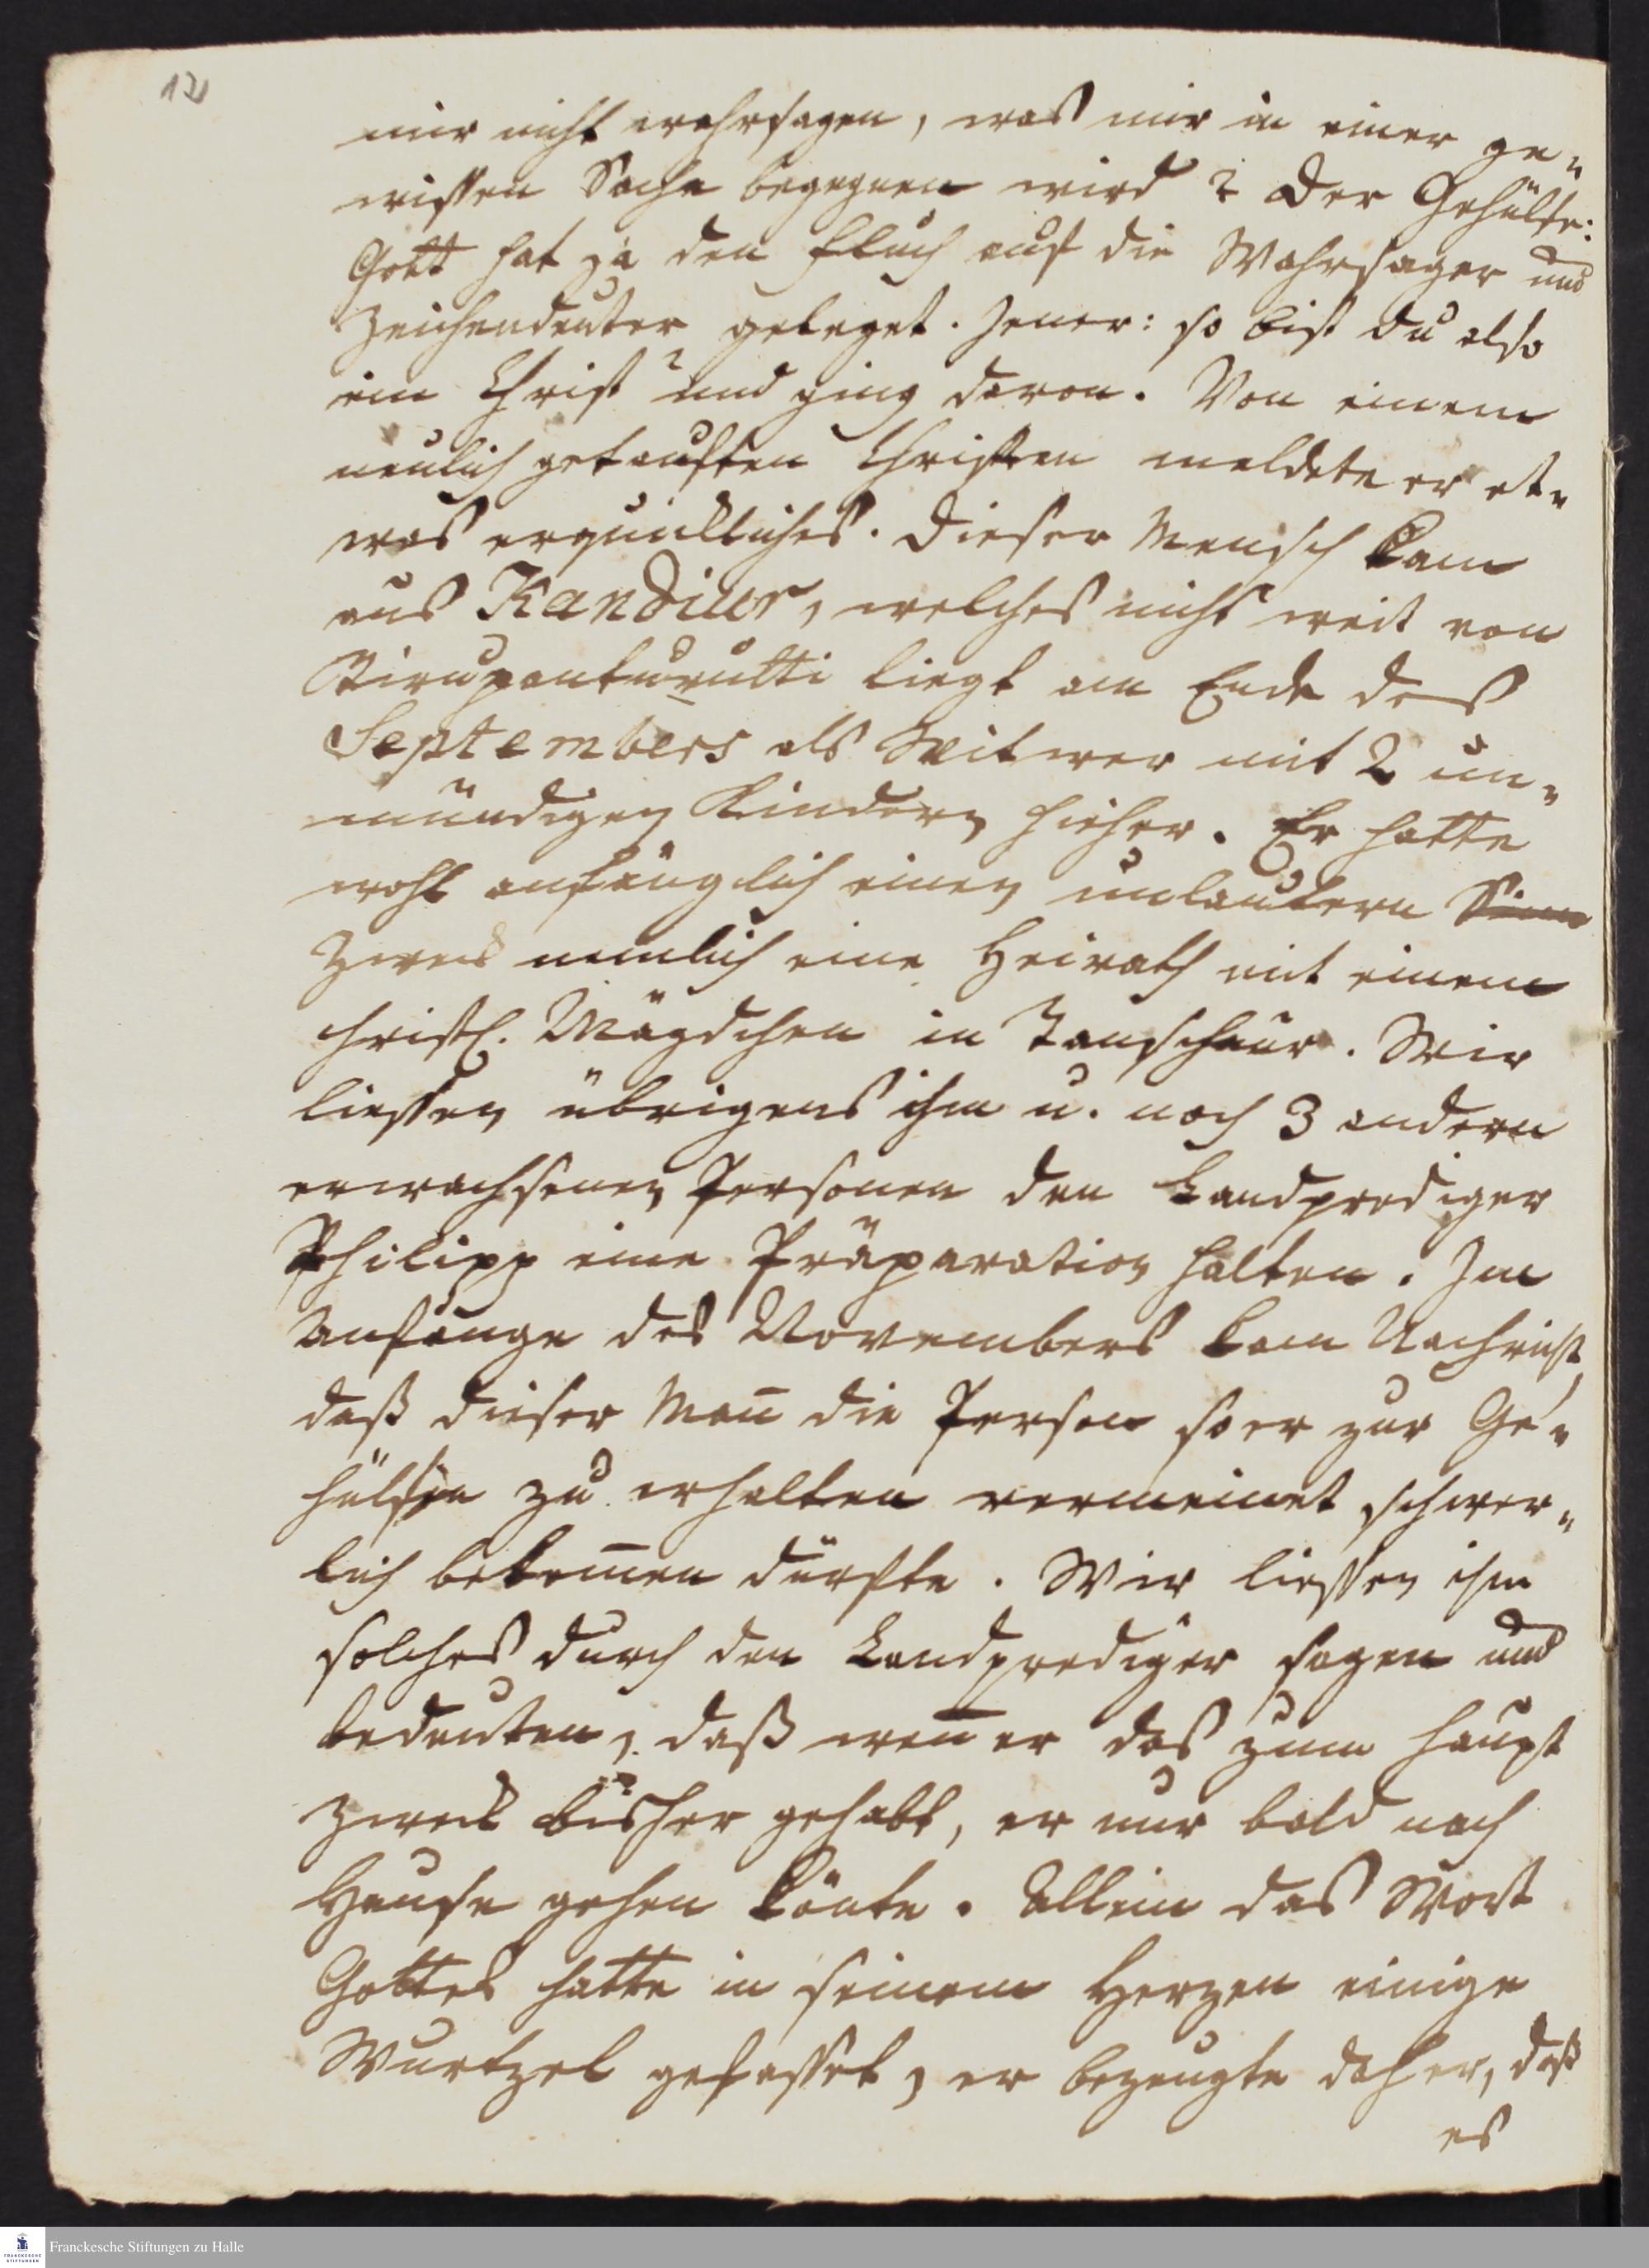 12
mir nicht wahrsagen, was mir in einer ge=
wissen Sache begegnen wird? Der Gehülfe:
Gott hat ja den Fluch auf die Wahrsager und
Zeichendeuter geleget. Jener: so bist du also
ein Christ? und ging davon. Von einem
neulich getauften Christen meldete er et=
was erquickliches. Dieser Mensch kam
aus Kandiur, welches nicht weit von
Tirupanturutti liegt am Ende des
Septembers als Witwer mit 2 un=
mündigen Kindern hieher. Er hatte
wohl anfänglich einen unlautern Sinn
Zweck nemlich eine Heirath mit einem
christl. Mägdchen in Tanschaur. Wir
liessen übrigens ihm u. noch 3 andern
erwachsenen Personen den Landprediger
Philipp eine Präparation halten. Im
Anfange des Novembers kam Nachricht,
daß dieser Mañ die Person so er zur Ge=
hülfin zu erhalten vermeinet schwer=
lich bekom̄en dürfte. Wir liessen ihm
solches durch den Landprediger sagen und
bedeuten, daß weñ er das zum Haupt
Zweck bisher gehabt, er nur bald nach
Hause gehen könte. Allein das Wort
Gottes hatte in seinem Herzen einige
Wurtzel gefasset, er bezeugte daher, daß
es
Franckesche Stiftungen zu Halle